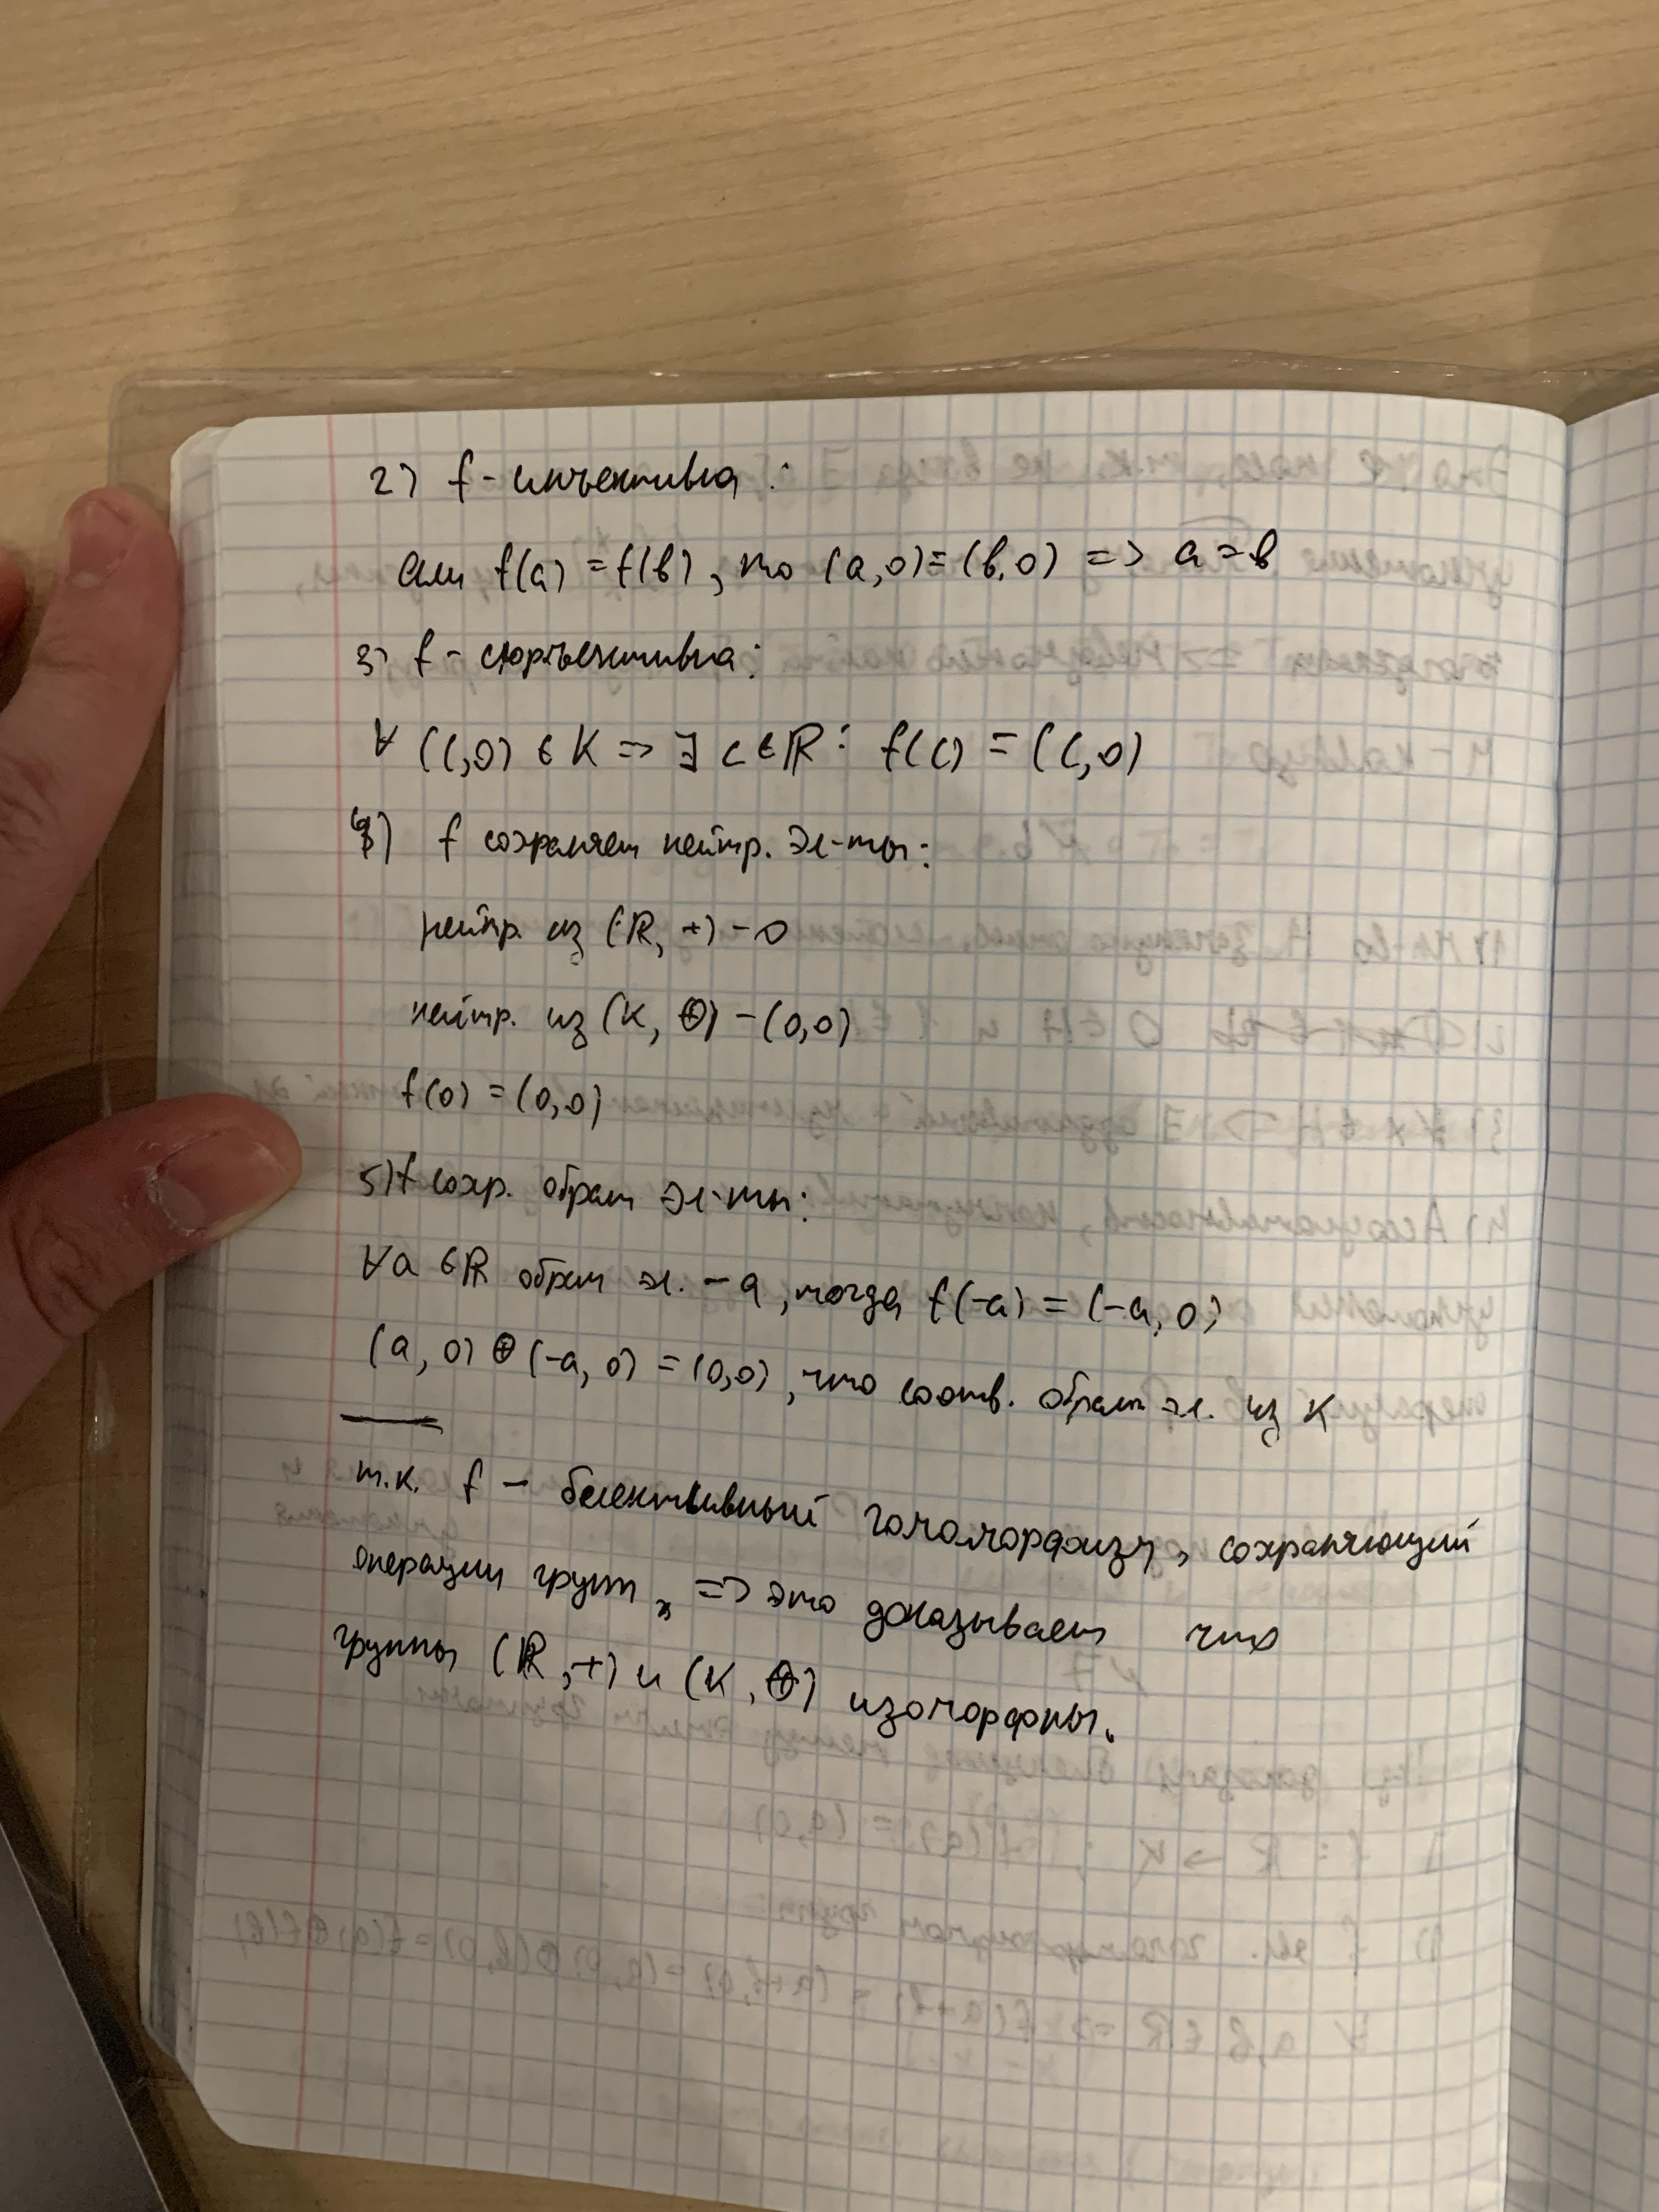 2) f - инъективна:
Если f(a) = f(b), то (a,0) = (b,0) => a = b
3) f - сюръективна:
∀ (c,0) ∈ K => ∃ c ∈ ℝ : f(c) = (c,0)
4) f сохраняет нейтр. эл-ты:
нейтр. из (ℝ, +) - 0
нейтр. из (K, ⊕) - (0,0)
f(0) = (0,0)
5) f сохр. обрат эл-ты:
∀a ∈ ℝ обрат эл. -a, тогда f(-a) = (-a, 0)
(a, 0) ⊕ (-a, 0) = (0,0), что соотв. обрат эл. из K
т.к. f - биективный гомоморфизм, сохраняющий
операции групп, => это доказывает что
группы (ℝ, +) и (K, ⊕) изоморфны.